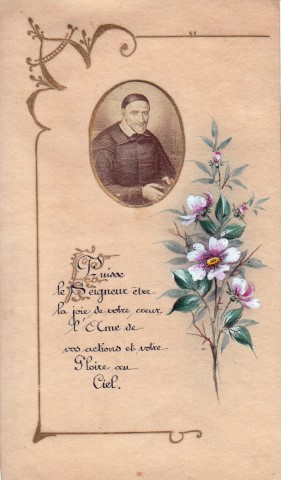 Puisse
le Seigneur être
la joie de votre cœur
l'Ame de
vos actions et votre
Gloire au
Ciel.